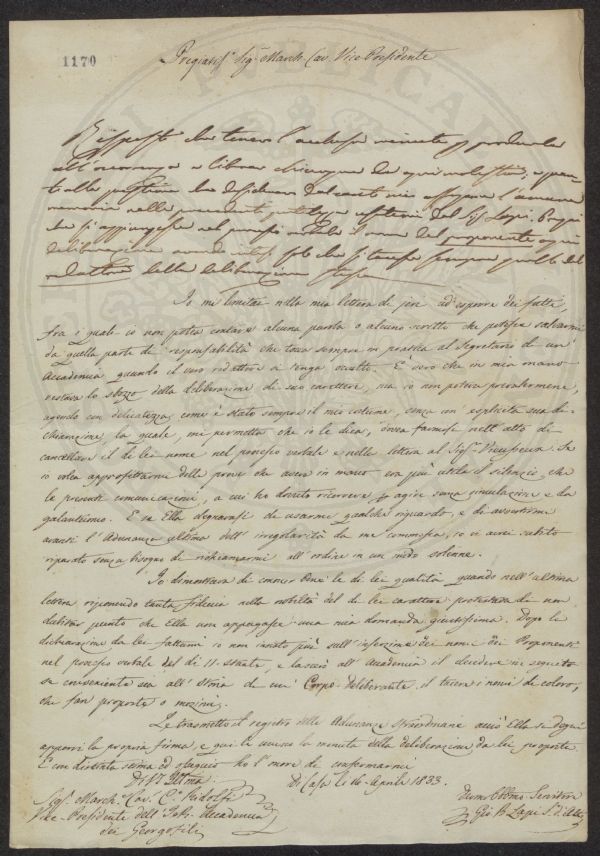 1170
Pregiatis.º Sig.r March. Cav. Vice Presidente
Risposto che tenesse l'acclusa minuta p. produrla
all'occorrenza e liberar chiunque da ogni molestia; e quan
to alla questione ho desiderato dal canto mio
memoria nelle precedenti del Sig. Lapi. Purché
che si aggiungesse nel processo verbale il nome del proponente ogni
deliberazione che si tacesse sempre quello del
redattore della deliberazione stessa
Io mi limitai nella mia lettera di jeri ad esporre dei fatti,
fra i quali io non potea contare alcuna parola o alcuno scritto che potesse salvarmi
da quella parte di responsabilità che tocca sempre in pratica al Segretario di un'
Accademia quando il vero redattore si tenga occulto. È vero che in mia mano
restava lo sbozzo della deliberazione di suo carattere, ma io non poteva prevalermene,
agendo con delicatezza come è stato sempre il mio costume, senza un'esplicita sua di-
chiarazione, la quale, mi permetta che io le dica, dovea farmisi nell'atto di
cancellare il di lei nome nel processo verbale e nella lettera al Sig.r Vieusseux. Se
io volea approfittarmi delle prove che avea in mano era più utile il silenzio che
le presenti comunicazioni, a cui ho dovuto ricorrere p. agire senza simulazione e da
galantuomo. E se Ella degnavasi di usarmi qualche riguardo, e di avvertirmi
avanti l'Adunanza ultima dell'irregolarità da me commessa, io ci avrei subito
riparato senza bisogno di richiamarmi all'ordine in un modo solenne.
Io dimostrava di conoscer bene le di lei qualità quando nell'ultima
lettera riponendo tanta fiducia nella nobiltà del di lei carattere protestava di non
dubitar punto che Ella non appagasse una mia domanda giustissima. Dopo la
dichiarazione da lei fattami io non insisto più sull'inserzione dei nomi dei Proponenti
nel processo verbale del dì 11. stante, e lascio all'Accademia il decidere in seguito
se conveniente sia all'Istoria di un Corpo deliberante il tacere i nomi di coloro,
che fan proposte o mozioni.
Le trasmetto il registro delle Adunanze straordinarie acciò Ella si degni
apporvi la propria firma, e qui le accuso la minuta della deliberazione da lei proposta.
E con distinta stima ed ossequio ho l'onore di confermarmi
Di V.S. Illma
Di Casa li 16. Aprile 1833.
Sig.r March. Cav. C. Ridolfi
Vice-Presidente dell'I. e R. Accademia
dei Georgofili
Devmo Obbmo Servitore
Gio. B. Lapi S. d. Atti